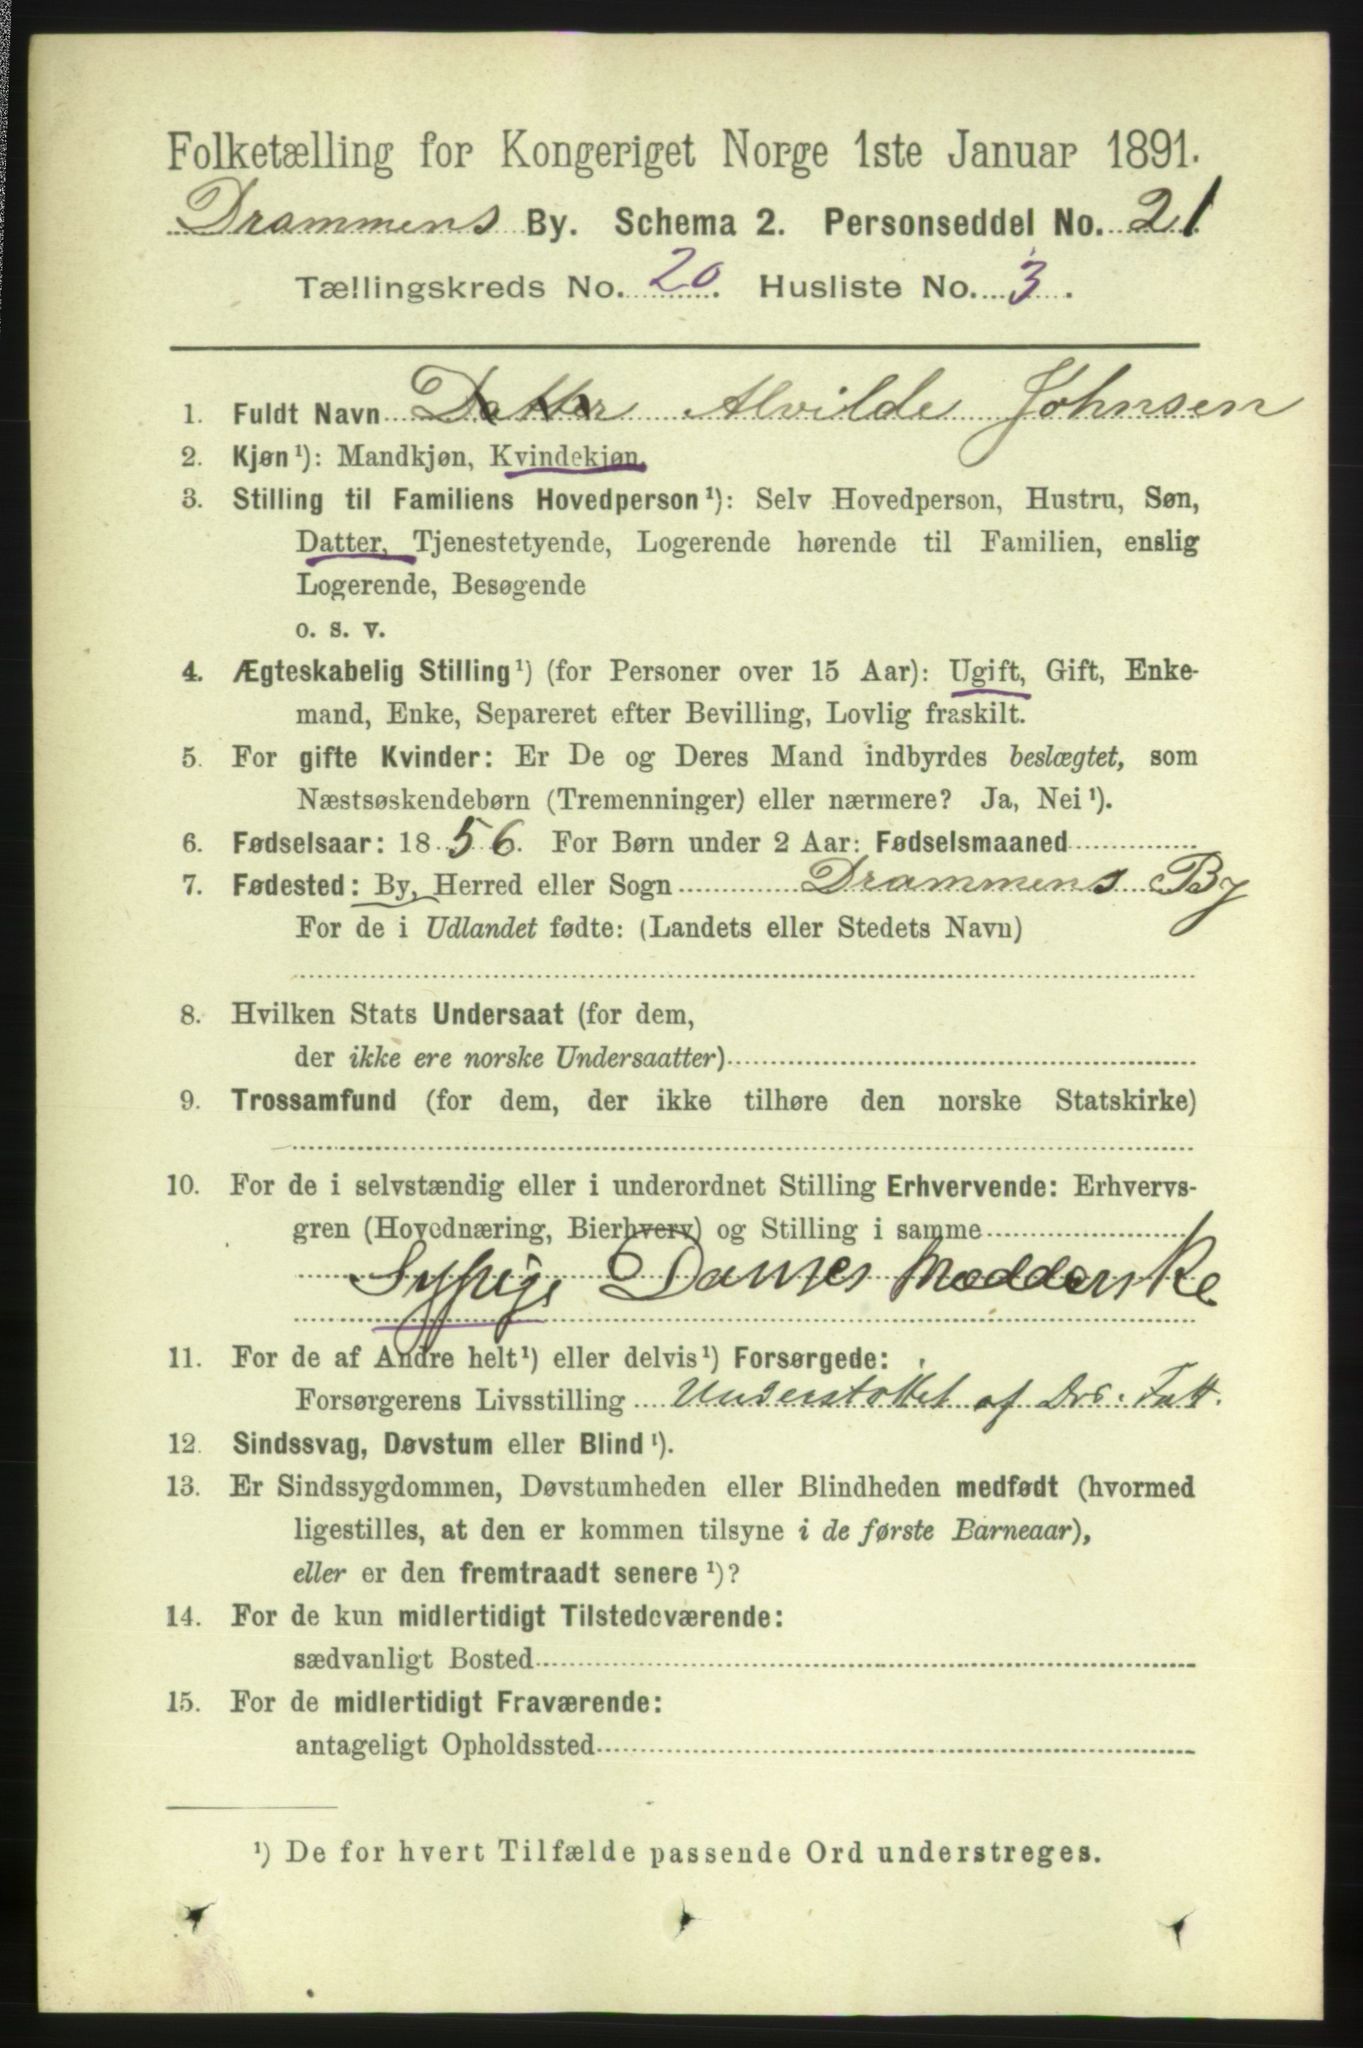 Folketælling for Kongeriget Norge 1ste Januar 1891.
Drammens By. Schema 2. Personseddel No. 21
Tællingskreds No. 20. Husliste No. 3.
1. Fuldt Navn Datter Alvilde Johnsen
2. Kjøn¹): Mandkjøn, Kvindekjøn.
3. Stilling til Familiens Hovedperson¹): Selv Hovedperson, Hustru, Søn,
Datter, Tjenestetyende, Logerende hørende til Familien, enslig
Logerende, Besøgende
o. s. v.
4. Ægteskabelig Stilling¹) (for Personer over 15 Aar): Ugift, Gift, Enke-
mand, Enke, Separeret efter Bevilling, Lovlig fraskilt.
5. For gifte Kvinder: Er De og Deres Mand indbyrdes beslægtet, som
Næstsøskendebørn (Tremenninger) eller nærmere? Ja, Nei¹).
6. Fødselsaar: 1856. For Børn under 2 Aar: Fødselsmaaned
7. Fødested: By, Herred eller Sogn Drammens By
For de i Udlandet fødte: (Landets eller Stedets Navn)
8. Hvilken Stats Undersaat (for dem,
der ikke ere norske Undersaatter)
9. Trossamfund (for dem, der ikke tilhøre den norske Statskirke)
10. For de i selvstændig eller i underordnet Stilling Erhvervende: Erhvervs-
gren (Hovednæring, Bierhverv) og Stilling i samme
Sypige Dames
11. For de af Andre helt¹) eller delvis¹) Forsørgede:
Forsørgerens Livsstilling Understøttet af Drs. Fatt.
12. Sindssvag, Døvstum eller Blind¹).
13. Er Sindssygdommen, Døvstumheden eller Blindheden medfødt (hvormed
ligestilles, at den er kommen tilsyne i de første Barneaar),
eller er den fremtraadt senere¹)?
14. For de kun midlertidigt Tilstedeværende:
sædvanligt Bosted
15. For de midlertidigt Fraværende:
antageligt Opholdssted
¹) De for hvert Tilfælde passende Ord understreges.